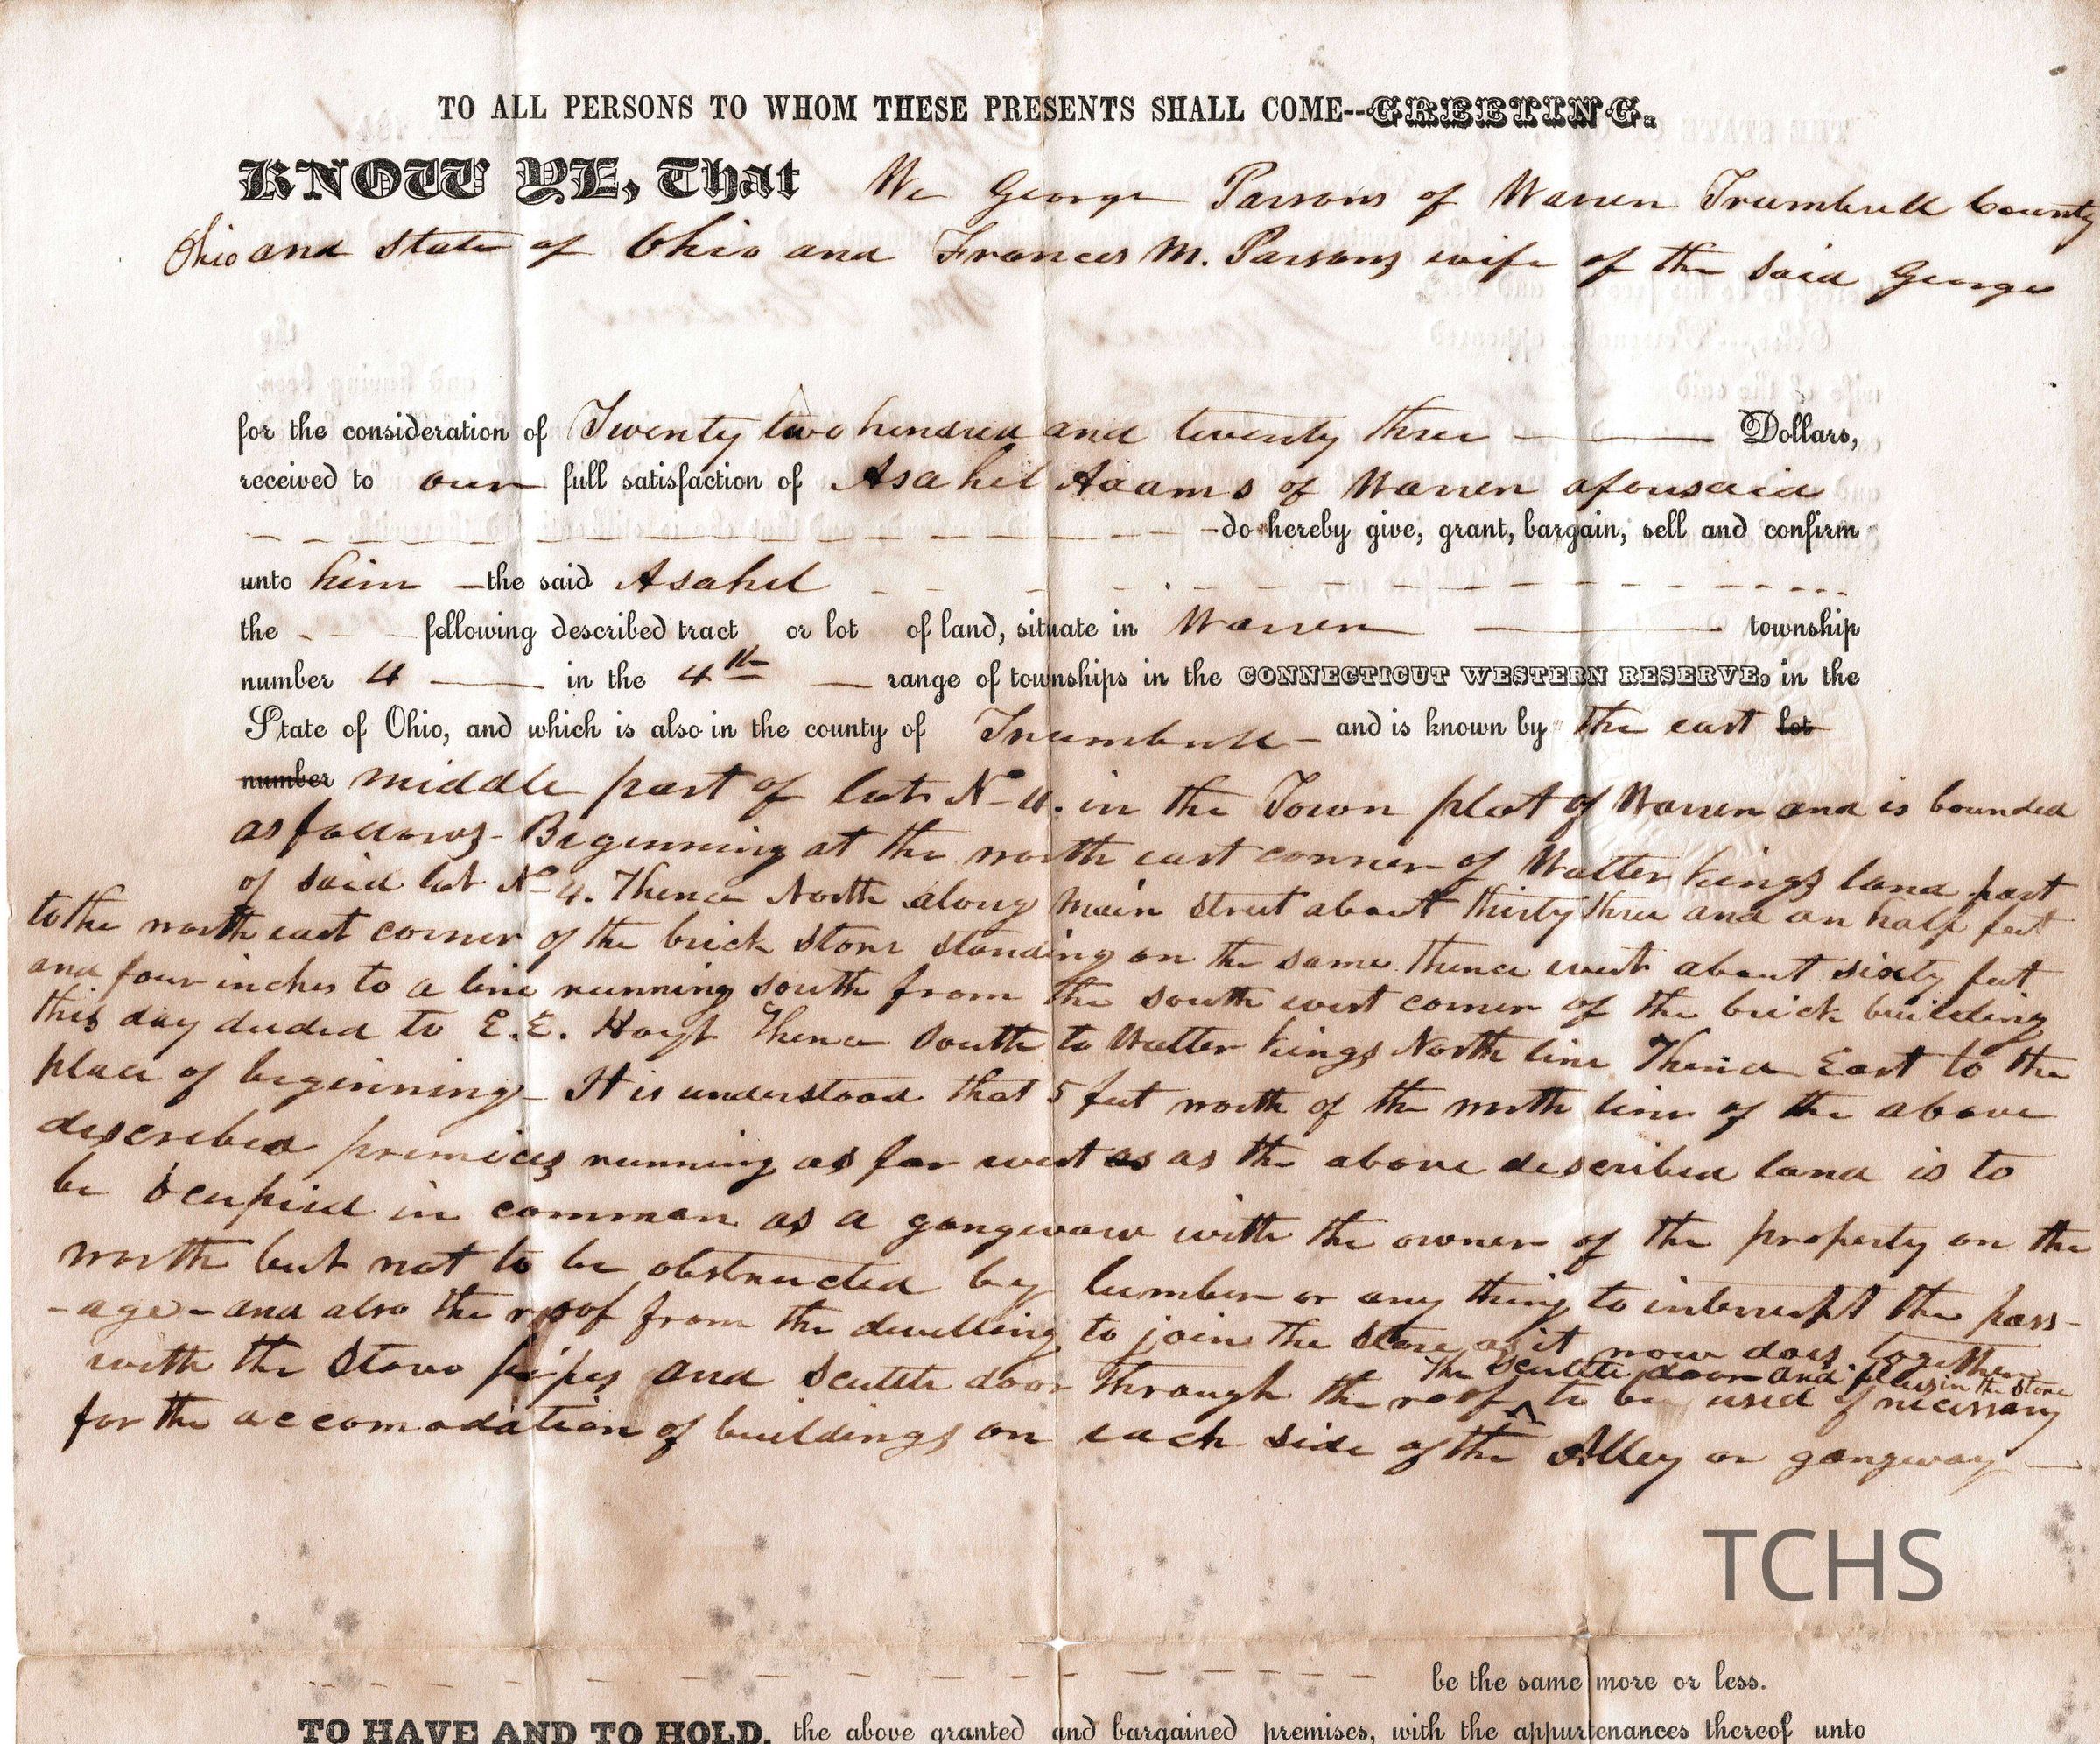 TO ALL PERSONS TO WHOM THESE PRESENTS SHALL COME--GREETING.
KNOW YE, That We George Parsons of Warren Trumbull County
Ohio and State of Ohio and Frances M. Parsons wife of the said George
for the consideration of Twenty two hundred and twenty three Dollars,
received to our full satisfaction of Asahel Adams of Warren aforesaid
do hereby give, grant, bargain, sell and confirm
unto him the said Asahel
the following described tract or lot of land, situate in Warren township
number 4 in the 4th range of townships in the CONNECTICUT WESTERN RESERVE, in the
State of Ohio, and which is also in the county of Trumbull and is known by the east lot
number middle part of lot No 4. in the Town plat of Warren and is bounded
as follows - Beginning at the north east conner of Walter Kings land part
of said lot No 4. Thence North along Main Street about thirty three and an half feet
to the north east corner of the brick store standing on the same thence west about sixty feet
and four inches to a line running south from the south west corner of the brick building
this day deeded to E.E. Hoyt Thence South to Walter Kings North line Thence East to the
place of beginning - It is understood that 5 feet north of the north line of the above
described premices running as far west as as the above described land is to
be Ocupied in common as a gangwaw with the owner of the property on the
north but not to be obstructed by lumber or any thing to interrupt the pass-
-age - and also the roof from the dwelling to join the Store as it now does together
with the Stove pipes and scuttle door through the roof to be used if necessary
the scuttle door and in the store
for the accomodation of buildings on each side of the Alley or gangway
TCHS
be the same more or less.
TO HAVE AND TO HOLD, the above granted and bargained premises, with the appurtenances thereof unto